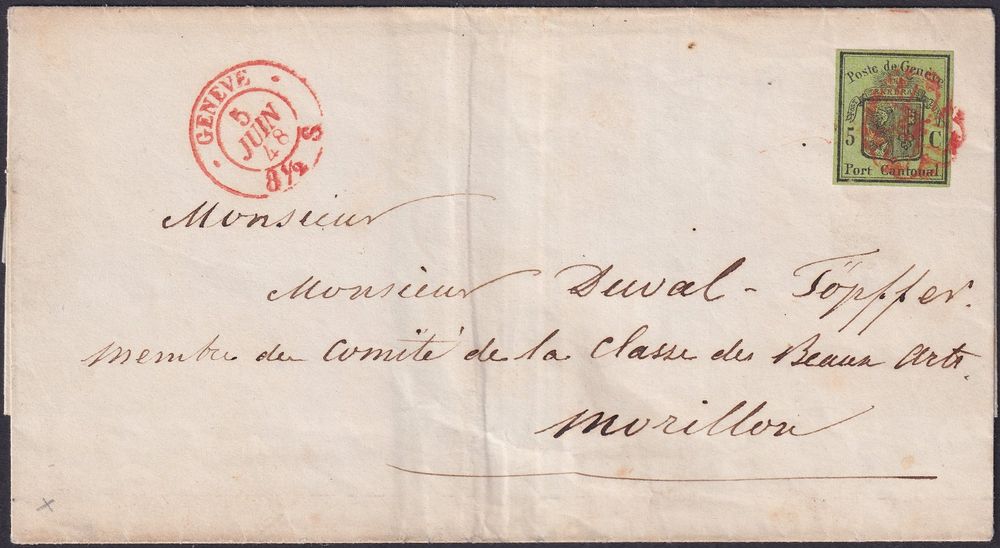 GENEVE
5
JUIN
48
8½ S
Poste de Genève
5 C
Port Cantonal
Monsieur
Monsieur Duval - Töpffer.
membre du Comité de la Classe des Beaux Arts.
Morillon
x